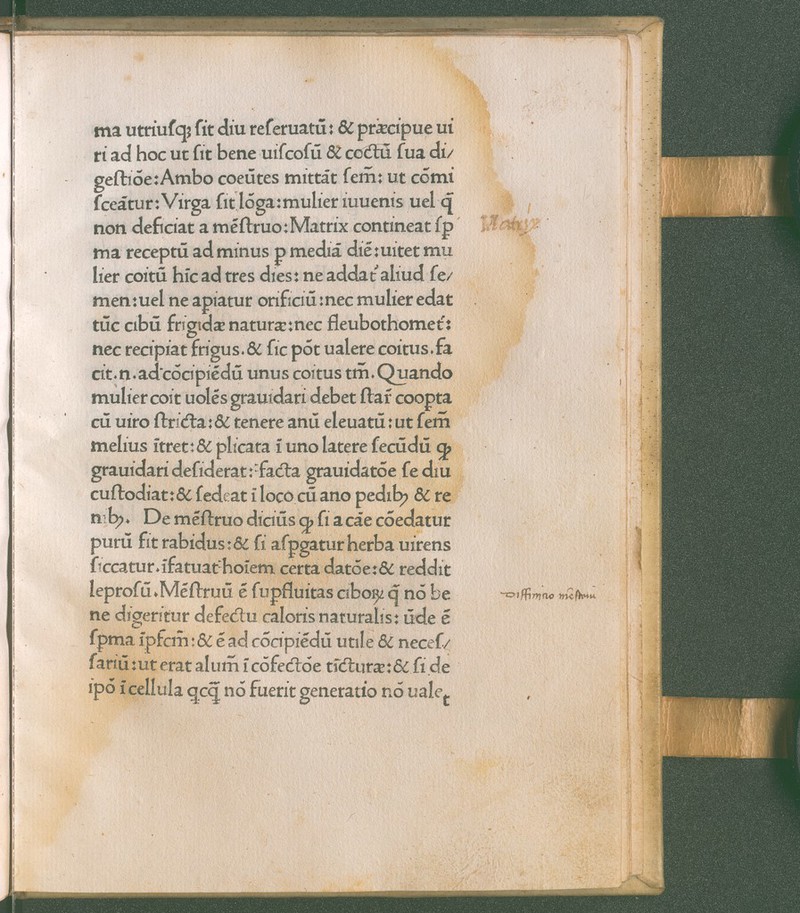 ma utriuſqꝫ ſit diu reſeruatū: & præcipue ui
ri ad hoc ut ſit bene uiſcoſū & coctū ſua di/
geſtiōe: Ambo coeūtes mittāt ſem̄: ut cōmi
ſceātur: Virga ſit lōga: mulier iuuenis uel q̄
non deficiat a mēſtruo: Matrix contineat ſp
ma receptū ad minus p mediā diē: uitet mu
lier coitū hīc ad tres dies: ne addat᷑ aliud ſe/
men: uel ne apiatur orificiū: nec mulier edat
tūc cibū frigidæ naturæ: nec fleubothomet᷑:
nec recipiat frigus. & ſic pōt ualere coitus. fa
cit. n. ad cōcipiēdū unus coitus tm̄. Quando
mulier coit uolēs grauidari debet ſtar̄ coopta
cū uiro ſtricta: & tenere anū eleuatū: ut ſem̄
melius ītret: & plicata ī uno latere ſecūdū ꝙ
grauidari deſiderat: facta grauidatōe ſe diu
cuſtodiat: & ſedeat ī loco cū ano pedibꝫ & re
nibꝫ. De mēſtruo diciūs ꝙ ſi a cāe cōedatur
purū fit rabidus: & ſi aſpgatur herba uirens
ſiccatur. īfatuat hoīem certa datōe: & reddit
leproſū. Mēſtruū ē ſupfluitas ciboꝝ q̄ nō be
ne digeritur defectu caloris naturalis: ūde ē
ſpma īpfcm̄: & ē ad cōcipiēdū utile & neceſ/
ſariū: ut erat alum̄ ī cōfectōe tīcturæ: & ſi de
ipō ī cellula qcq̄ nō fuerit generatio nō ualet
Matrix
Diffinitio mēſtrui